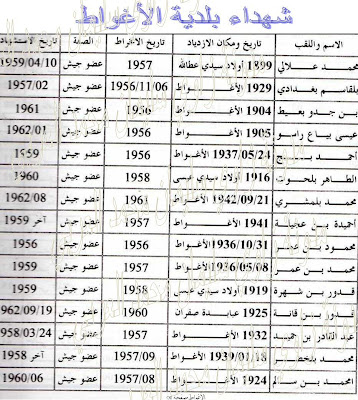 شهداء بلدية الأغواط
الاسم واللقب تاريخ ومكان الازدياد تاريخ الانخراط الصفة تاريخ الاستشهاد
محمد علالي 1899 أولاد سيدي عطالله 1957 عضو جيش 1959/04/10
بلقاسم بغدادي 1929 الأغواط 1956/11/06 عضو جيش 1957/02
بن جدو بعيط 1904 الأغواط 1956 عضو جيش 1961
عيسى بياع راسو 1905 الأغواط 1956 عضو جيش 1962/01
أحمد 1937/05/24 الأغواط 1956 عضو جيش 1959
الطاهر بلحوت 1916 أولاد سيدي عيسى 1958 عضو جيش 1960
محمد بلمشري 1942/09/21 الأغواط 1961 عضو جيش 1962/08
أحميدة بن عجيلة 1941 الأغواط 1957 عضو جيش آخر 1959
محمود بن عمر 1936/10/31 الأغواط 1956 عضو جيش 1956
محمد بن عمر 1936/05/08 الأغواط 1957 عضو جيش 1959
قدور بن شهرة 1919 أولاد سيدي عيسى 1958 عضو جيش 1959
قدور بن قانة 1925 عبابدة صفران 1960 عضو جيش 1962/09/19
عبد القادر بن حميد 1932 الأغواط 1957 عضو جيش 1958/03/24
امحمد بلخضر 1939/01/18 الأغواط 1957/09 عضو جيش آخر 1958
امحمد بن سالم 1924 الأغواط 1957/08 عضو جيش 1960/06